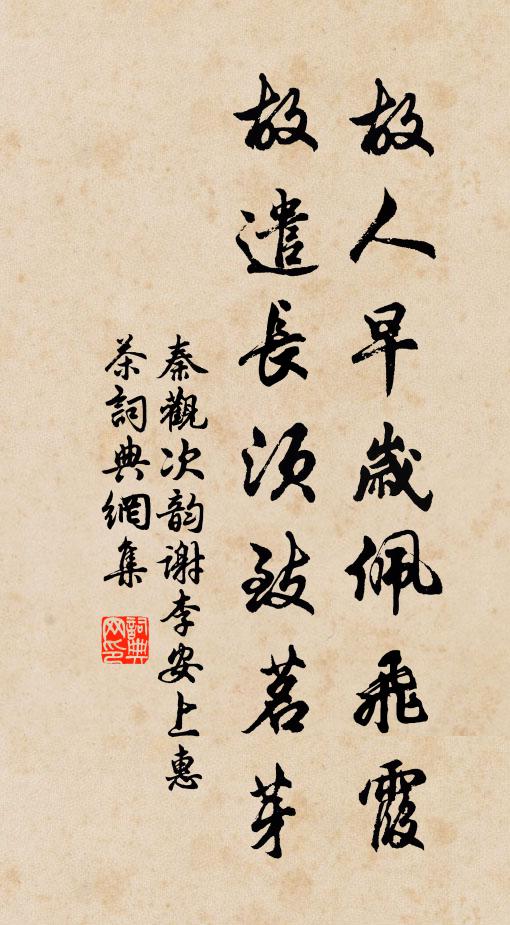 故人早歲佩飛霞
故遣長須致茗芽
秦觀次韵謝李安上惠
茶詞典網集
詞典网印